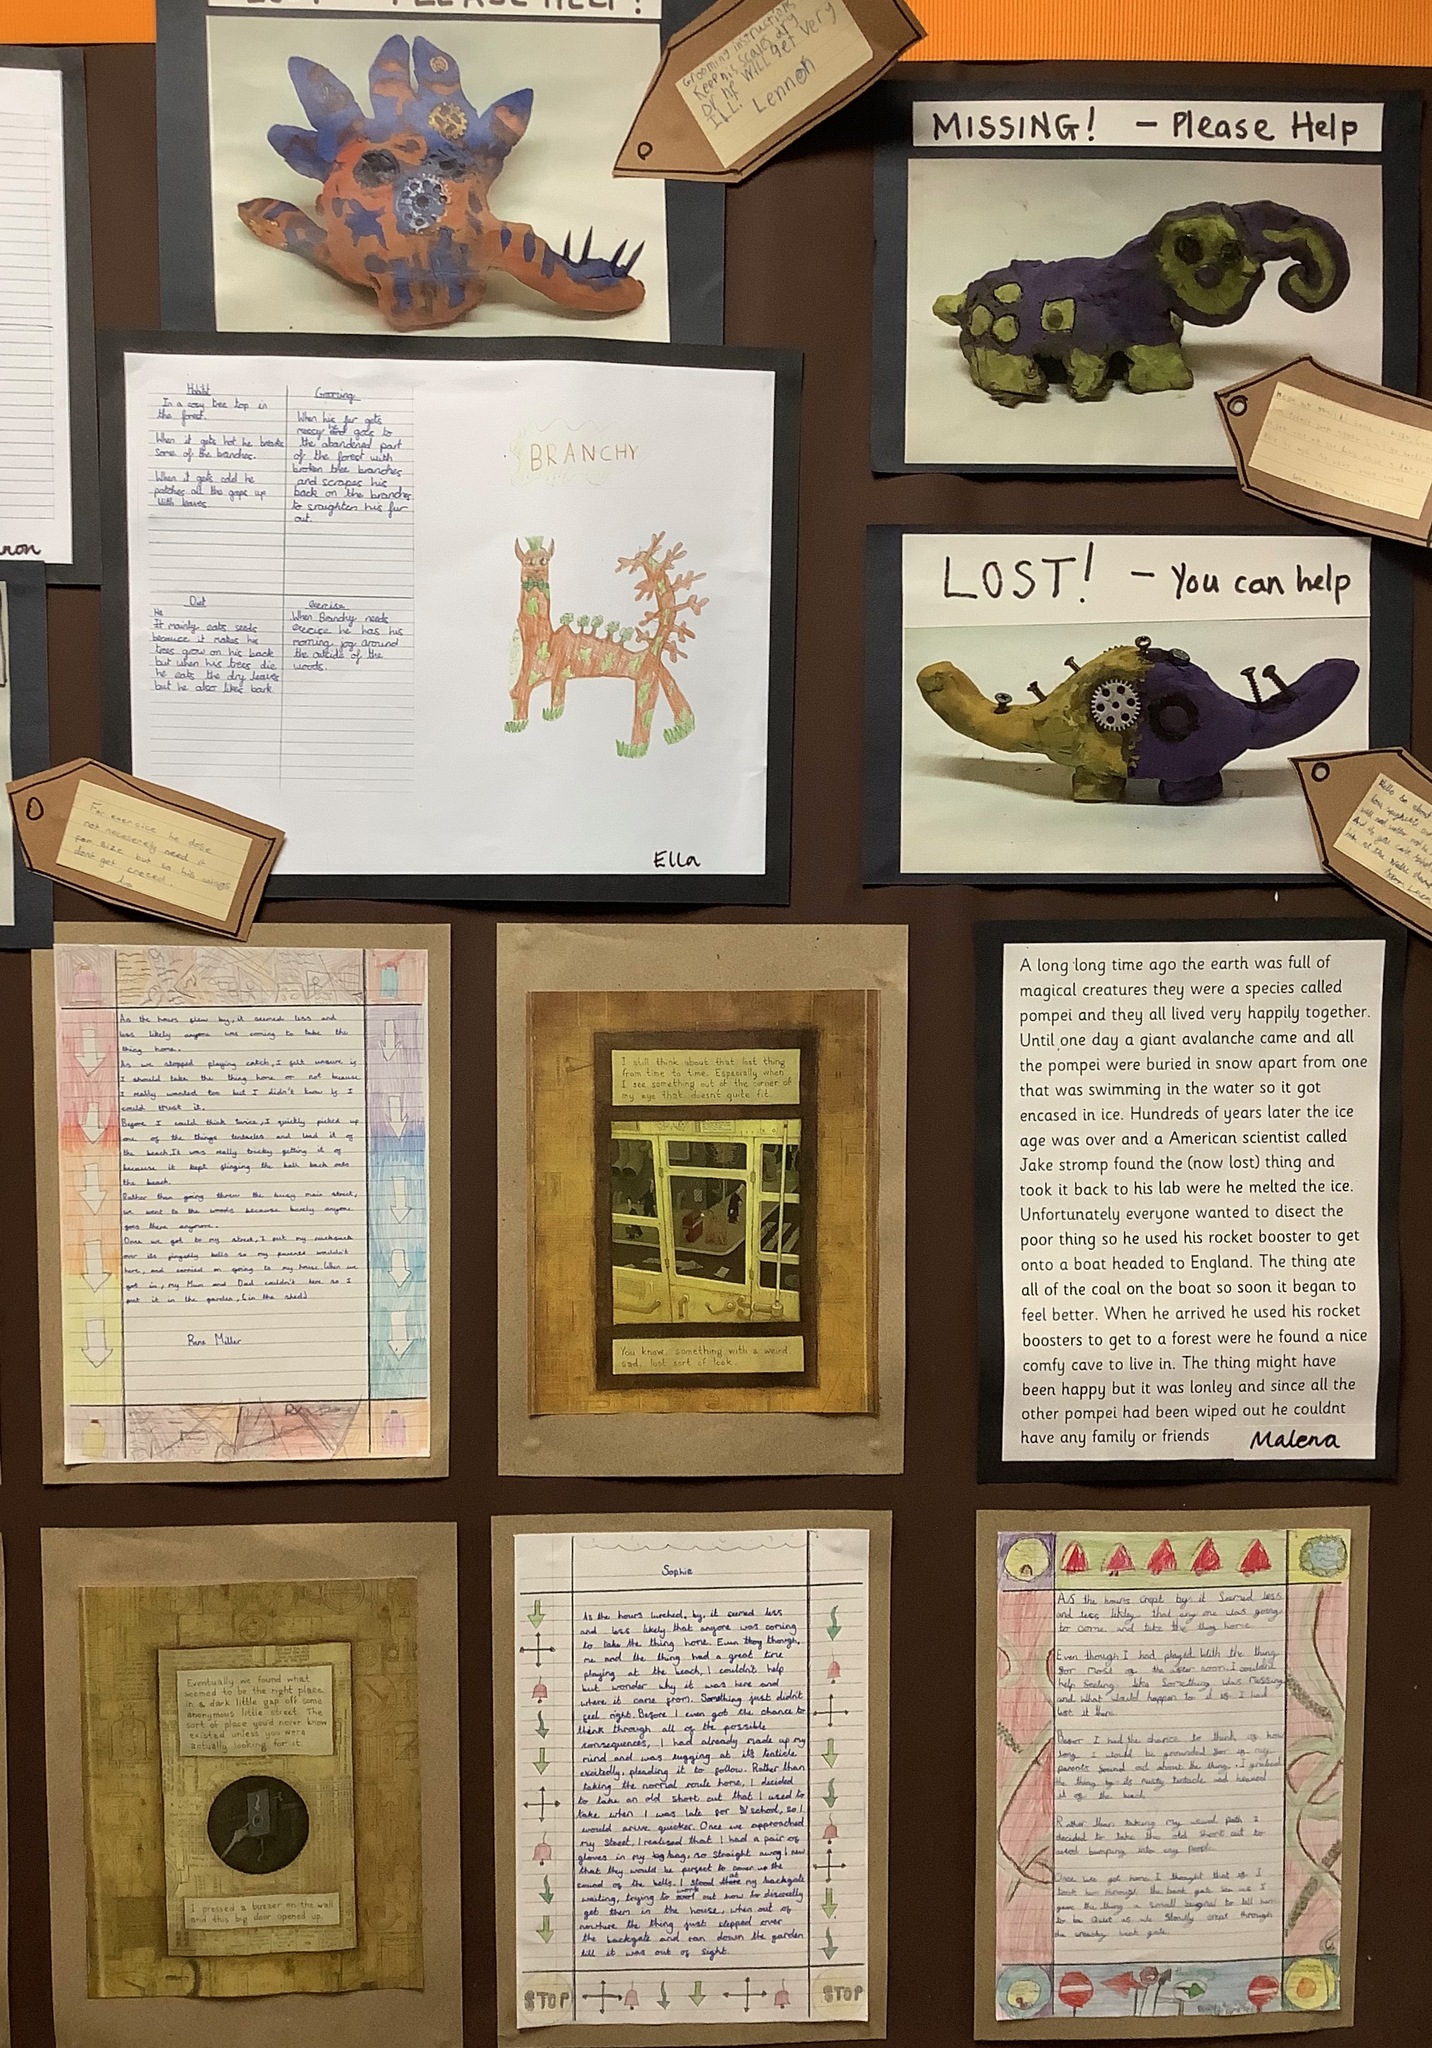 PLEASE HELP!
Grooming instructions
Keep his scales dry
Or he WILL get very
ILL!
Lennon
MISSING! - Please Help
Habitat
In a cosy tree top in
the forest.
When it gets hot he breaks
some of the branches.
When it gets cold he
patches all the gaps up
with leaves
Grooming
When his fur gets
messy he goes to
the abandened part
of the forest with
broken tree branches
and scrapes his
back on the branches
to sraighten his fur
out.
Diet
He
It mainly eats seeds
because it makes his
trees grow on his back
but when his trees die
he eats the dry leaves
but he also likes bark
exercise
When Branchy needs
exercise he has his
morning jog around
the outside of the
woods.
BRANCHY
Ella
LOST! - You can help
For exercise he dose
not neceserely need it
for size but so his wings
dont get creased.
As the hours flew by, it seemed less and
less likely anyone was coming to take the
thing home.
As we stopped playing catch, I felt unsure if
I should take the thing home or not because
I really wanted too but I didn't know if I
could trust it.
Before I could think twice, I quickly picked up
one of the things tentacles and lead it of
the beach. It was really tricky getting it of
because it kept flinging the ball back onto
the beach.
Rather than going threw the busy main street,
we went to the woods because barely anyone
goes there anymore.
Once we got to my street, I put my rucksack
over its jingerly bells so my parents wouldn't
here, and carried on going to my house. When we
got in, my Mum and Dad couldn't here so I
put it in the garden, (in the shed)
Miller
I still think about that lost thing
from time to time. Especially when
I see something out of the corner of
my eye that doesn't quite fit.
You know, something with a weird,
sad, lost sort of look.
A long long time ago the earth was full of
magical creatures they were a species called
pompei and they all lived very happily together.
Until one day a giant avalanche came and all
the pompei were buried in snow apart from one
that was swimming in the water so it got
encased in ice. Hundreds of years later the ice
age was over and a American scientist called
Jake stromp found the (now lost) thing and
took it back to his lab were he melted the ice.
Unfortunately everyone wanted to disect the
poor thing so he used his rocket booster to get
onto a boat headed to England. The thing ate
all of the coal on the boat so soon it began to
feel better. When he arrived he used his rocket
boosters to get to a forest were he found a nice
comfy cave to live in. The thing might have
been happy but it was lonley and since all the
other pompei had been wiped out he couldnt
have any family or friends
Malena
Eventually we found what
seemed to be the right place,
in a dark little gap off some
anonymous little street. The
sort of place you'd never know
existed unless you were
actually looking for it.
I pressed a buzzer on the wall
and this big door opened up.
Sophie
As the hours lurched, by, it seemed less
and less likely that anyone was coming
to take the thing home. Even though,
me and the thing had a great time
playing at the beach, I couldn't help
but wonder why it was here and
where it came from. Something just didn't
feel right. Before I even got the chance to
think through all of the possible
consequences, I had already made up my
mind and was tugging at its tenticle
excitedly, pleading it to follow. Rather than
taking the normal route home, I decided
to take an old short cut that I used to
take when I was late for school, so I
would arive quicker. Once we approached
my street, I realised that I had a pair of
gloves in my bag, so straight away I new
that they would be perfect to cover up the
sound of the bells. I stood at my backgate
waiting, trying to work out how to discreetly
get them in the house, when out of
nowhere the thing just stepped over
the backgate and ran down the garden
till it was out of sight.
STOP
STOP
As the hours crept by it Seemed less
and less likley that any one was going
to come and take the thing home.
Even though I had played with the thing
for most of the after noon. I couldn't
help feeling like Something was Missing
and what would happen to it if I had
lost it there.
Befor I had the chance to think of how
long I would be grounded for if my
parents found out about the thing, I grabed
the thing by its rusty tentacle and heaved
it of the beach.
Rather than taking my usual path I
decided to take the old short cut to
avoid bumping into any people.
Once we got home I thought that if I
took him through the back gate
gave the thing a small signal to tell him
to be Quiet as we Slowly crept through
the creacky back gate.